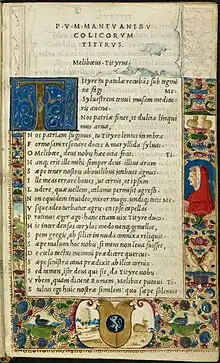 P. V. M. MANTVANI BV
COLICORVM
TITYRVS.
Meliboeus. Tityrus.
Tityre tu patulæ recubãs sub tegmi
ne fagi Me.
Syluestrem tenui musam medita
ris auena,
Nos patriæ fines, et dulcia linqui
mus arua,
Nos patriam fugimus, tu Tityre lentus in umbra
Formosam resonare doces Amaryllida syluas.
O Meliboee, deus nobis hæc ocia fecit. Ti.
Nanque erit ille mihi semper deus, illius aram
Sæpe tener nostris ab ouilibus imbuet agnus.
Ille meas errare boues, ut cernis, et ipsum
Ludere, quæ uellem, calamo permisit agresti.
Non equidem inuideo, miror magis, undique totis
Vsque adeo turbatur agris. en ipse capellas
Protinus æger ago, hanc etiam uix Tityre duco.
Hic inter densas corylos modo nanque gemellos,
Spem gregis, ah silice in nuda connixa reliquit.
Sæpe malum hoc nobis, si mens non læua fuisset,
De coelo tactas memini prædicere quercus.
Sæpe sinistra caua prædixit ab ilice cornix.
Sed tamen, iste deus qui sit, da Tityre nobis.
Vrbem, quam dicunt Romam, Meliboee putaui Ti.
Stultus ego huic nostræ similem, quo sæpe solemus